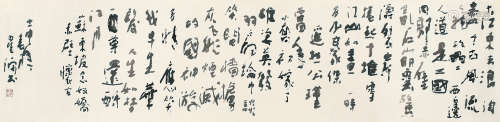 大江東去浪
淘盡千古風流
人物故壘西邊
人道是三國
周郎赤壁
亂石崩雲驚
濤裂岸
捲起千堆雪
江山如畫一時
多少豪傑
遙想公瑾
當年
小喬初嫁了
雄姿英發
羽扇綸巾談
笑間檣櫓
灰飛煙滅
故國神遊
多情應笑
我早生華
髮人生如夢
一尊還酹
江月
蘇東坡念奴嬌
赤壁懷古
壬申